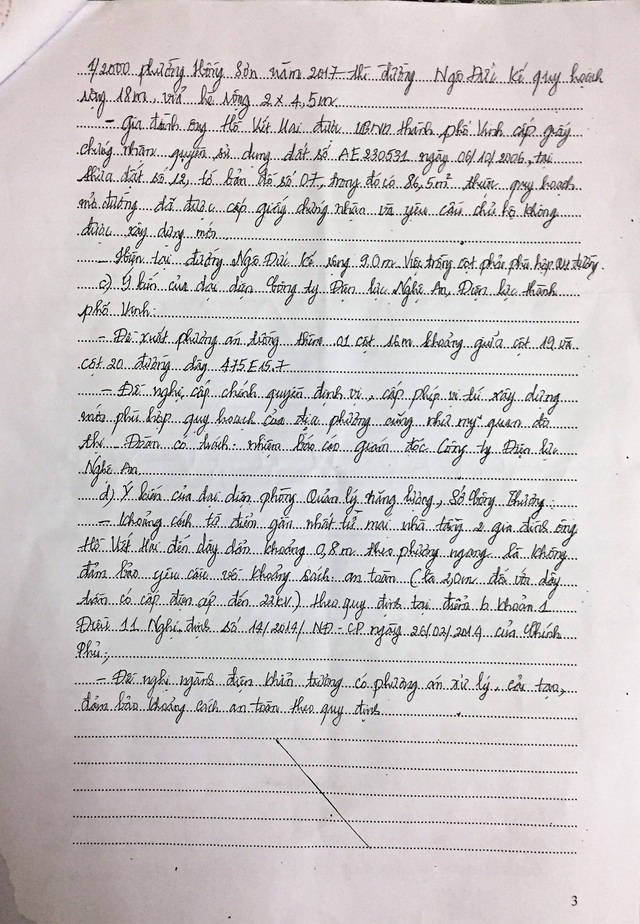 1/2000 phường Hồng Sơn năm 2017 thì đường Ngô Đức Kế quy hoạch
rộng 18m, vỉa hè rộng 2 x 4,5m
- Gia đình ông Hồ Viết Mai được UBND thành phố Vinh cấp giấy
chứng nhận quyền sử dụng đất số AE 230531 ngày 06/10/2006, tại
thửa đất số 12, tờ bản đồ số 07, trong đó có 86,5m² thuộc quy hoạch
mở đường đã được cấp giấy chứng nhận và yêu cầu chủ hộ không
được xây dựng mới
- Hiện tại đường Ngô Đức Kế rộng 9.0m. Việc trồng cột phải phù hợp đường.
c) Ý kiến của đại diện Công ty Điện lực Nghệ An, Điện lực thành
phố Vinh:
- Đề xuất phương án trồng thêm 01 cột 16m khoảng giữa cột 19 và
cột 20 đường dây 475E15.7
- Đề nghị cấp chính quyền định vị, cấp phép vị trí xây dựng
móng phù hợp quy hoạch của địa phương cũng như mỹ quan đô
thị - Đoàn có trách nhiệm báo cáo giám đốc Công ty Điện lực
Nghệ An
d) Ý kiến của đại diện phòng Quản lý năng lượng, Sở Công Thương:
- Khoảng cách từ điểm gần nhất từ mái nhà tầng 2 gia đình ông
Hồ Viết Mai đến dây dẫn khoảng 0,8m theo phương ngang là không
đảm bảo yêu cầu về khoảng cách an toàn (là 2,0m đối với dây
trần có cấp điện áp đến 22kV) theo quy định tại điểm b khoản 1
Điều 11 Nghị định số 14/2014/NĐ-CP ngày 26/02/2014 của Chính
Phủ;
- Đề nghị ngành điện khẩn trương có phương án xử lý, cải tạo,
đảm bảo khoảng cách an toàn theo quy định
3